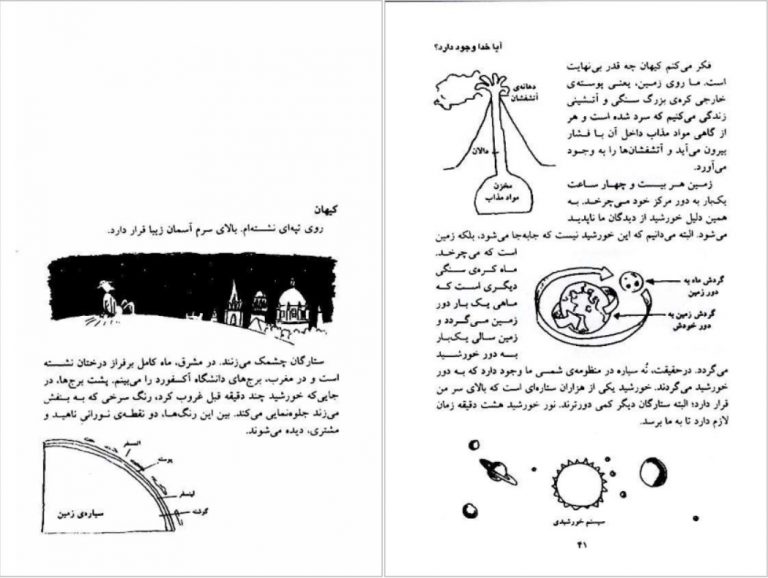 کیهان
روی تپه‌ای نشسته‌ام. بالای سرم آسمان زیبا قرار دارد.
ستارگان چشمک می‌زنند. در مشرق، ماه کامل برفراز درختان نشسته
است و در مغرب، برج‌های دانشگاه آکسفورد را می‌بینم. پشت برج‌ها، در
جایی‌که خورشید چند دقیقه قبل غروب کرد، رنگ سرخی که به بنفش
می‌زند جلوه‌نمایی می‌کند. بین این رنگ‌ها، دو نقطه‌ی نورانی ناهید و
مشتری، دیده می‌شوند.
اتمسفر
پوسته
لیتسفر
گوشته
سیاره‌ی زمین
آیا خدا وجود دارد؟
فکر می‌کنم کیهان چه قدر بی‌نهایت
است. ما روی زمین، یعنی پوسته‌ی
خارجی کره‌ی بزرگ سنگی و آتشینی
زندگی می‌کنیم که سرد شده است و هر
از گاهی مواد مذاب داخل آن با فشار
بیرون می‌آید و آتشفشان‌ها را به وجود
می‌آورد.
دهانه‌ی
آتشفشان
دالان
مخزن
مواد مذاب
زمین هر بیست و چهار ساعت
یک‌بار به دور مرکز خود می‌چرخد. به
همین دلیل خورشید از دیدگان ما ناپدید
می‌شود. البته می‌دانیم که این خورشید نیست که جابه‌جا می‌شود، بلکه زمین
است که می‌چرخد.
ماه کره‌ی سنگی
دیگری است که
ماهی یک بار دور
زمین می‌گردد و
زمین سالی یک‌بار
به دور خورشید
گردش ماه به
دور زمین
گردش زمین به
دور خودش
می‌گردد. درحقیقت، نُه سیاره در منظومه‌ی شمسی ما وجود دارد که به دور
خورشید می‌گردند. خورشید یکی از هزاران ستاره‌ای است که بالای سر من
قرار دارد؛ البته ستارگان دیگر کمی دورترند. نور خورشید هشت دقیقه زمان
لازم دارد تا به ما برسد.
سیستم خورشیدی
۴۱